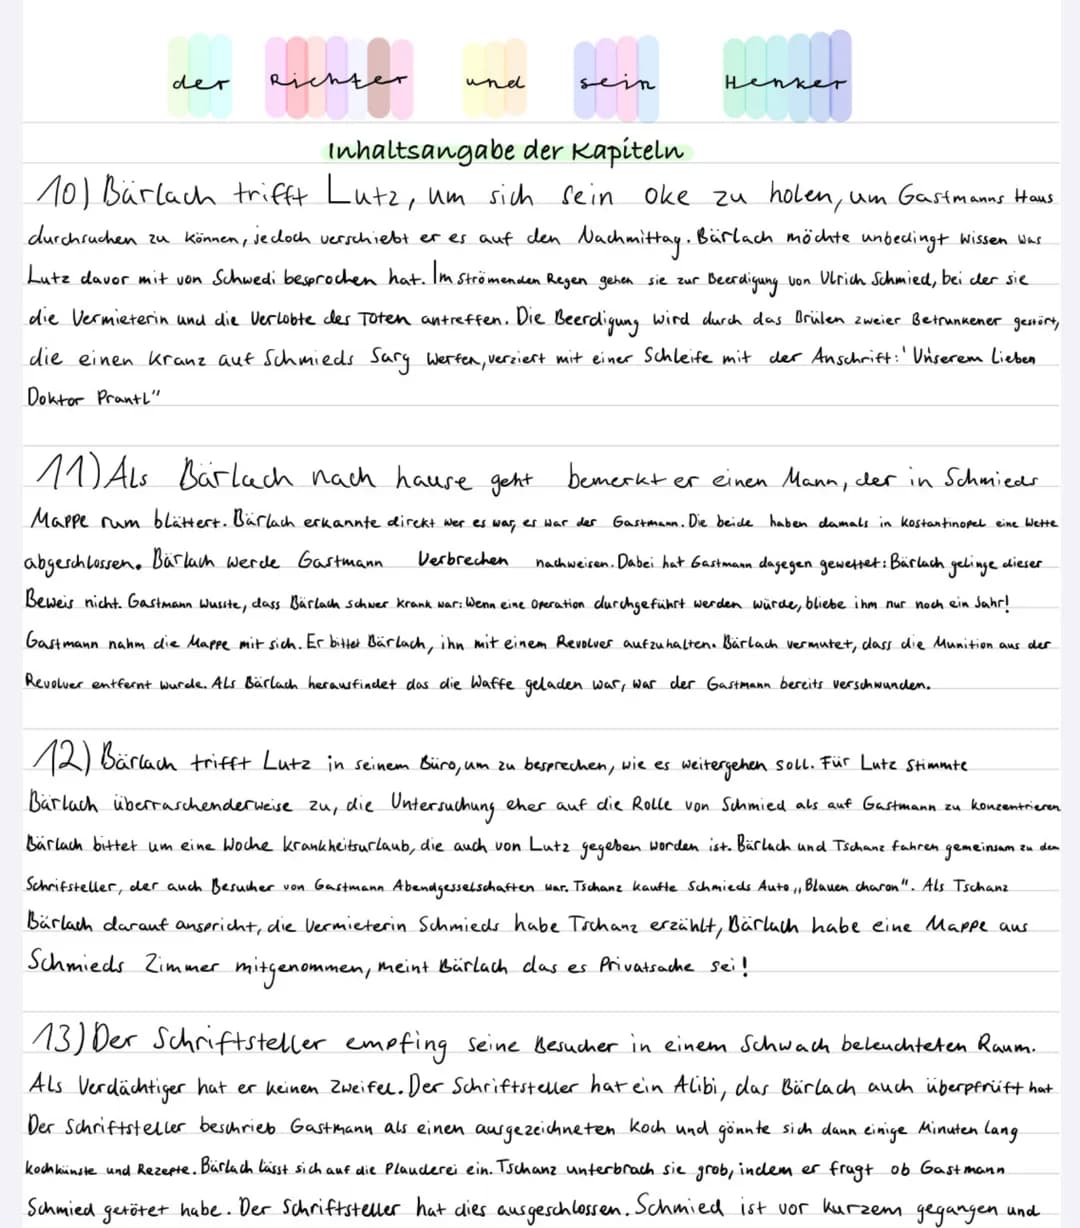 der Richter und sein Henker
Inhaltsangabe der Kapiteln
10) Bärlach trifft Lutz, um sich sein oke zu holen, um Gastmanns Haus
durchsuchen zu können, jedoch verschiebt er es auf den Nachmittag. Bärlach möchte unbedingt wissen was
Lutz davor mit von Schwedi besprochen hat. Im strömenden Regen gehen sie zur Beerdigung von Ulrich Schmied, bei der sie
die Vermieterin und die Verlobte des Toten antreffen. Die Beerdigung wird durch das Brülen zweier Betrunkener gestört,
die einen Kranz auf Schmieds Sarg werfen, verziert mit einer Schleife mit der Anschrift: ' Unserem Lieben
Doktor Prantl"
11) Als Bärlach nach hause geht bemerkt er einen Mann, der in Schmieds
Mappe rum blättert. Bärlach erkannte direkt wer es war, es war der Gastmann. Die beide haben damals in Kostantinopel eine Wette
abgeschlossen. Bärlach werde Gastmann Verbrechen nachweisen. Dabei hat Gastmann dagegen gewettet: Bärlach gelinge dieser
Beweis nicht. Gastmann wusste, dass Bärlach schwer krank war: Wenn eine Operation durchgeführt werden würde, bliebe ihm nur noch ein Jahr!
Gastmann nahm die Mappe mit sich. Er bittet Bärlach, ihn mit einem Revolver aufzuhalten. Bärlach vermutet, dass die Munition aus der
Revolver entfernt wurde. Als Bärlach herausfindet das die Waffe geladen war, war der Gastmann bereits verschwunden.
12) Bärlach trifft Lutz in seinem Büro, um zu besprechen, wie es weitergehen soll. Für Lutz stimmte
Bärlach überraschenderweise zu, die Untersuchung eher auf die Rolle von Schmied als auf Gastmann zu konzentrieren
Bärlach bittet um eine Woche Krankheitsurlaub, die auch von Lutz gegeben worden ist. Bärlach und Tschanz fahren gemeinsam zu dem
Schrifsteller, der auch Besucher von Gastmann Abendgesselschaften war. Tschanz kaufte Schmieds Auto „Blauen charon". Als Tschanz
Bärlach darauf anspricht, die Vermieterin Schmieds habe Tschanz erzählt, Bärlach habe eine Mappe aus
Schmieds Zimmer mitgenommen, meint Bärlach das es Privatsache sei!
13) Der Schriftsteller empfing seine Besucher in einem Schwach beleuchteten Raum.
Als Verdächtiger hat er keinen Zweifel. Der Schriftsteller hat ein Alibi, das Bärlach auch überprüft hat
Der Schriftsteller beschrieb Gastmann als einen ausgezeichneten Koch und gönnte sich dann einige Minuten lang
kochkünste und Rezepte. Bärlach lässt sich auf die Plauderei ein. Tschanz unterbrach sie grob, indem er fragt ob Gastmann
Schmied getötet habe. Der Schriftsteller hat dies ausgeschlossen. Schmied ist vor kurzem gegangen und